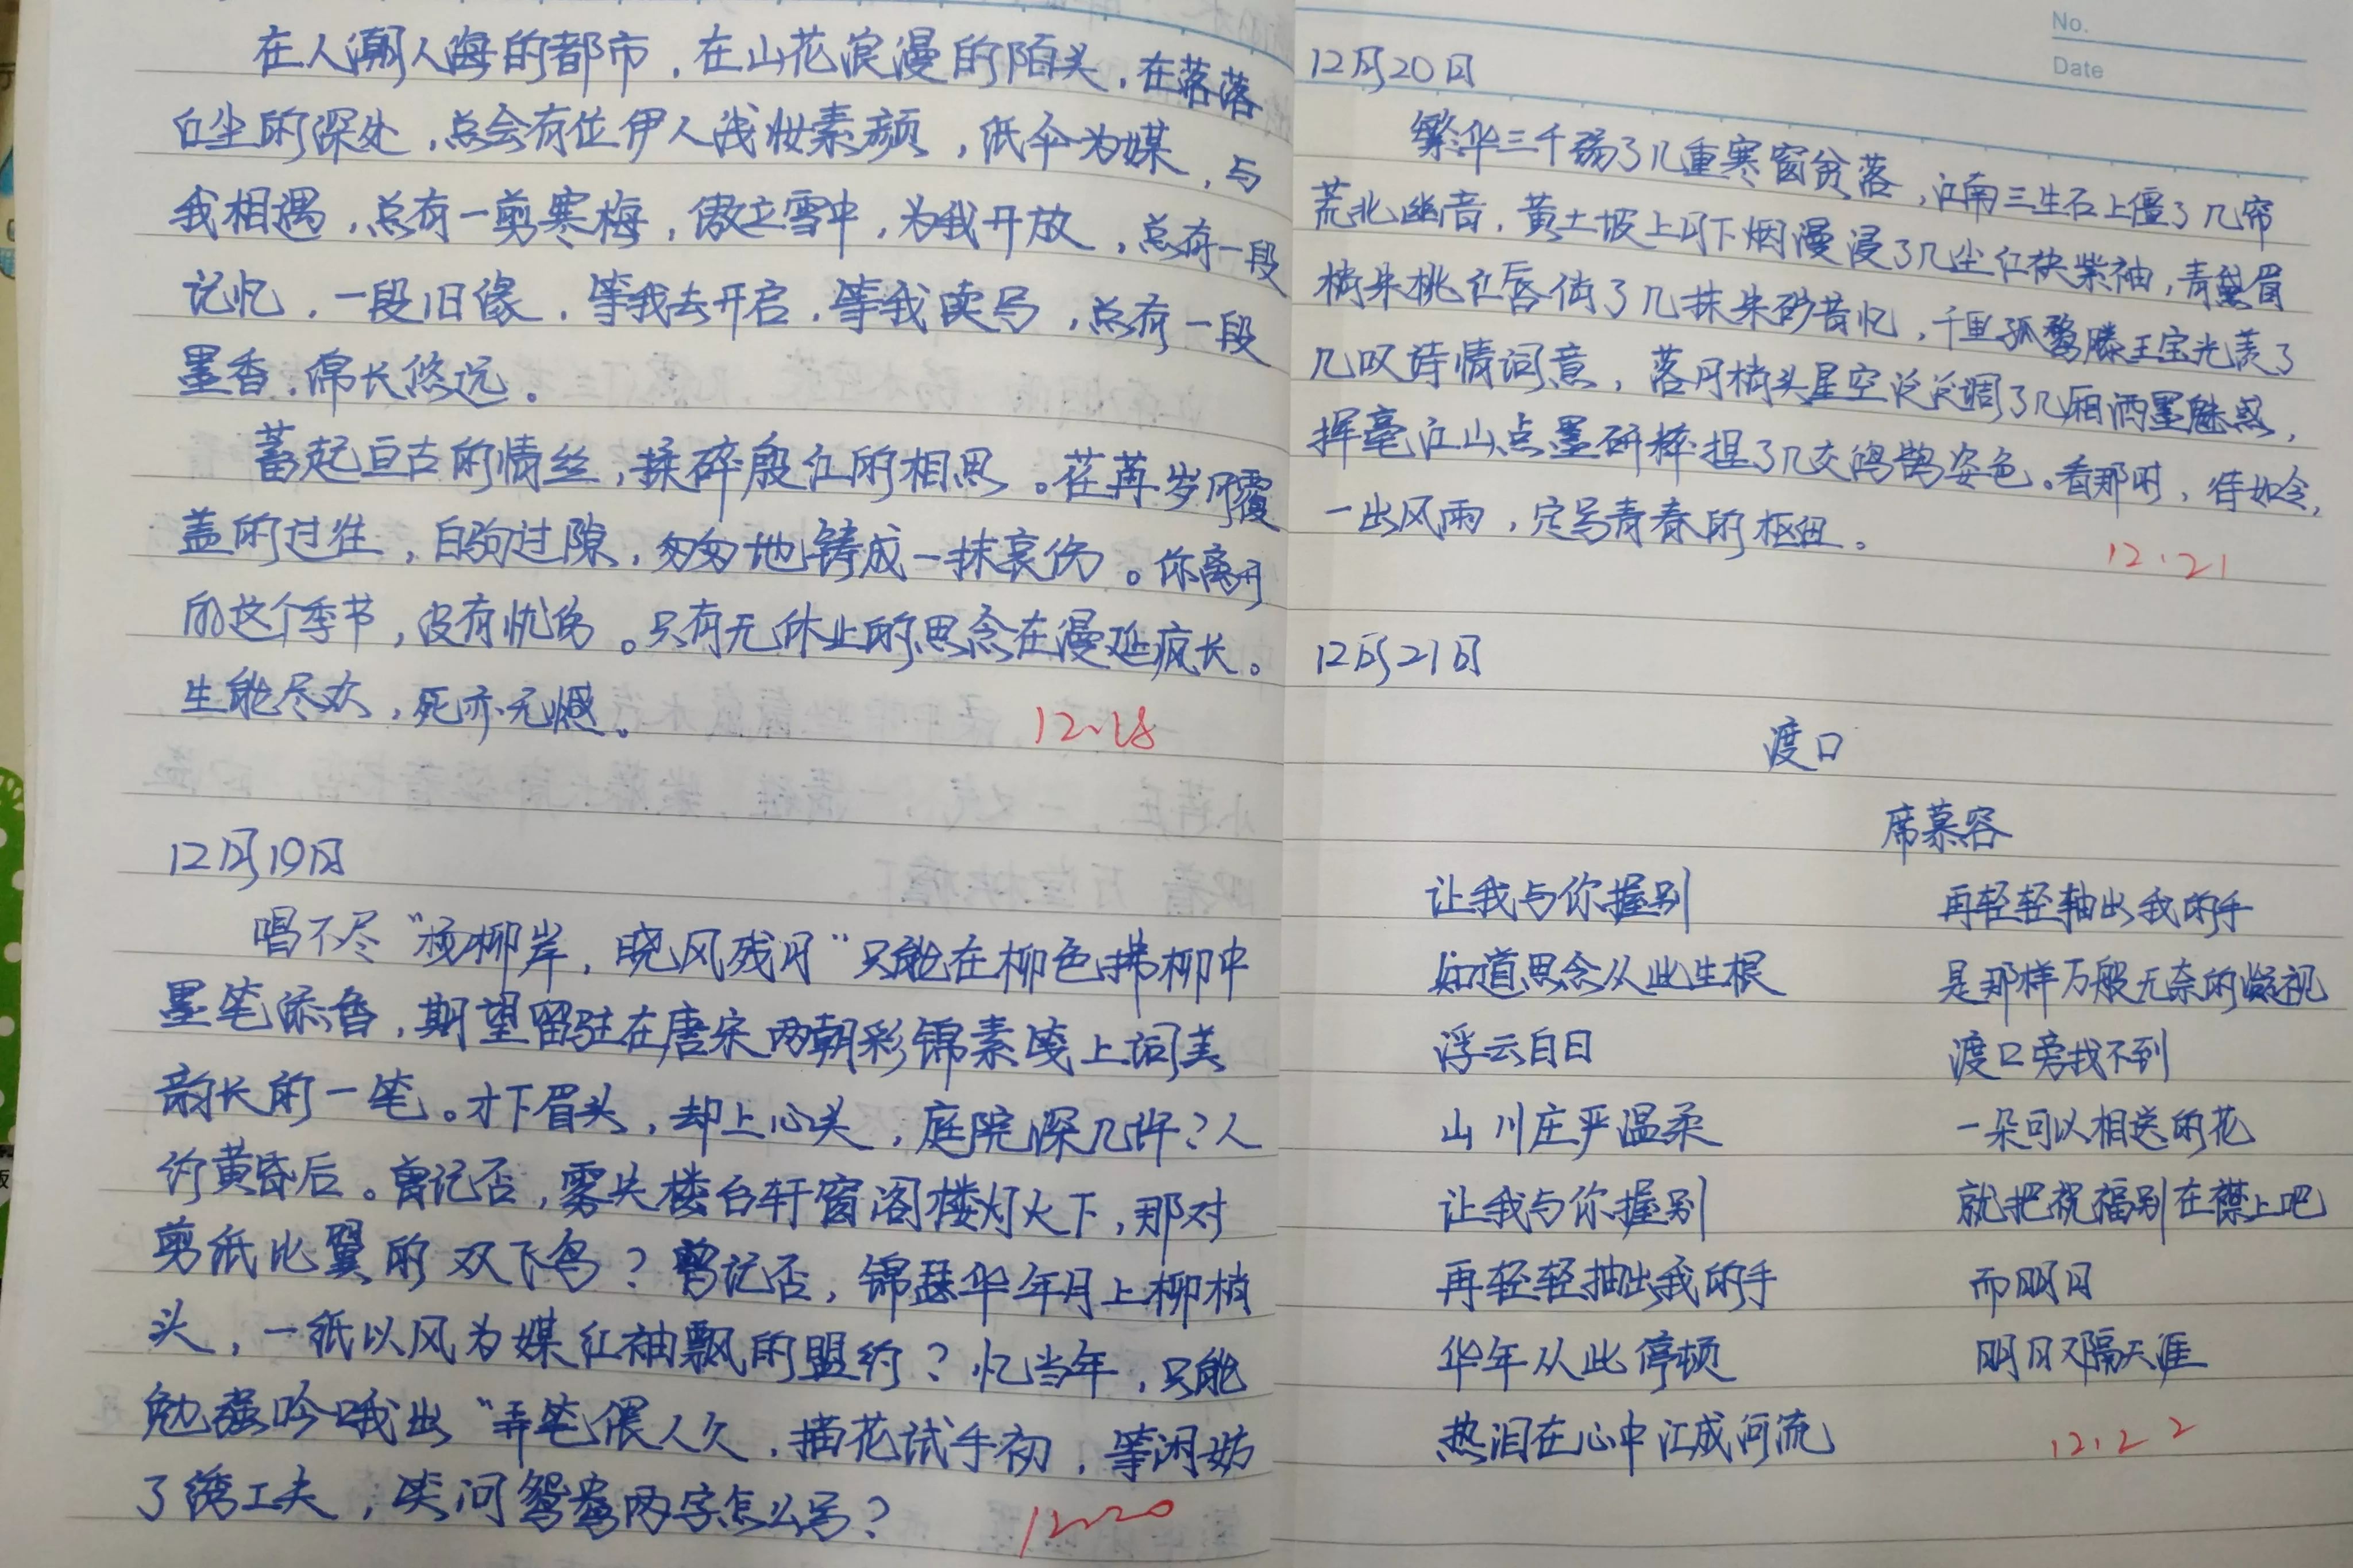 在人潮人海的都市，在山花浪漫的陌头，在落落
白尘的深处，总会有位伊人浅妆素颜，纸伞为媒，与
我相遇，总有一剪寒梅，傲立雪中，为我开放，总有一段
记忆，一段旧缘，等我去开启，等我续写，总有一段
墨香，绵长悠远。
蓄起亘古的情丝，揉碎殷红的相思。荏苒岁月覆
盖的过往，白驹过隙，匆匆地铸成一抹哀伤。你离开
的这个季节，没有忧伤。只有无休止的思念在漫延疯长。
生能尽欢，死亦无憾。
12.18
12月19日
唱不尽“杨柳岸，晓风残月”只能在柳色拂柳中
墨笔添香，期望留驻在唐宋两朝彩锦素笺上词美
韵长的一笔。才下眉头，却上心头，庭院深几许？人
约黄昏后。曾记否，雾失楼台轩窗阁楼灯火下，那对
剪纸比翼的双飞鸟？曾记否，锦瑟华年月上柳梢
头，一纸以风为媒红袖飘的盟约？忆当年，只能
勉强吟哦出“弄笔偎人久，描花试手初，等闲妨
了绣工夫，笑问鸳鸯两字怎么写？
12.20
No.
Date
12月20日
繁华三千殇了几重寒窗贫落，江南三生石上僵了几帘
荒北幽音，黄土坡上日下烟漫浸了几尘红袂紫袖，青黛眉
梢朱桃红唇佑了几抹朱砂昔忆，千里孤鹜滕王宝光羡了
几叹诗情词意，落月梢头星空泛泛调了几厢洒墨魅惑，
挥毫江山点墨研粹捏了几交鸿鹄姿色。看那时，待如今，
一出风雨，定写青春的枢纽。
12.21
12月21日
渡口
席慕容
让我与你握别
知道思念从此生根
浮云白日
山川庄严温柔
让我与你握别
再轻轻抽出我的手
华年从此停顿
热泪在心中汇成河流
再轻轻抽出我的手
是那样万般无奈的凝视
渡口旁找不到
一朵可以相送的花
就把祝福别在襟上吧
而明日
明日又隔天涯
12.22